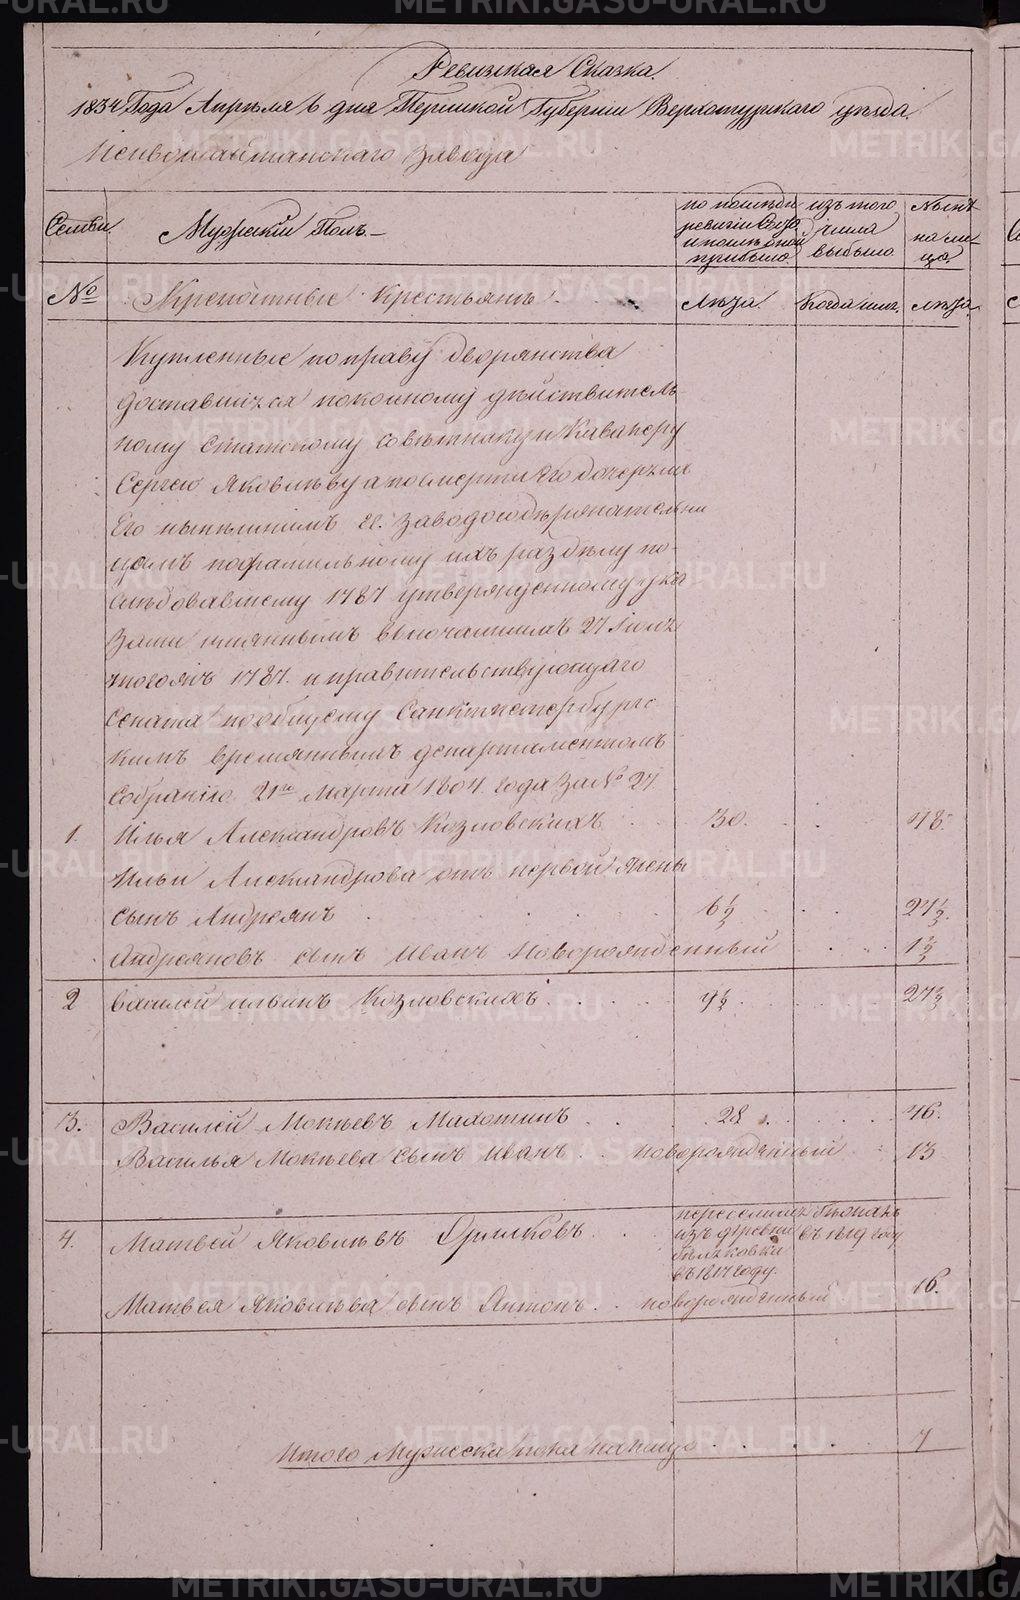 Ревизская Сказка.
1834 Года Апреля 6 дня Пермской Губернии Верхотурскаго уѣзда
завода
Семьи.
Мужский Полъ
по послѣдн. ревизіи было и послѣ оной прибыло.
изъ того числа выбыло
Нынѣ на лица.
№
Крепостные Крестьянѣ
Лѣта.
Когда имен.
лѣта.
Купленные по праву дворянства
доставшихся покойному дѣйствитель
ному статскому совѣтнику и Кавалеру
Сергею Яковлеву а по смерти его дочерьми
Его нынѣшнимъ гг. заводосодержательни
цамъ по фамильному ихъ раздѣлу по-
слѣдовавшему 1787 утвержденному ука
зами имяннымъ высочайшимъ 27 Іюля
1787. и правительствующаго
Сената по общему Санктпетербургс
кимъ времяннымъ департаментомъ
Собранію 21го Марта 1804 года За № 27
1. Илья Александровъ Козловскихъ 30. 48.
Ильи Александрова отъ первой жены
сынъ Андреянъ 6½ 24½.
Андреяновъ сынъ Иванъ новорожденный 1½
2 Василей ильинъ Козловскихъ 9½ 27½
3. Василей Мокѣевъ Махотинъ 28 46.
Василья Мокѣева сынъ Иванъ новорожденный 13
4. Матвей Яковлевъ Орликовъ переселенъ изъ деревни въ 1817 году. въ 1819 году
Матвея Яковлева сынъ Антонъ новорожденный 16.
Итого Мужеска пола на лицо 7
METRIKI.GASO-URAL.RU